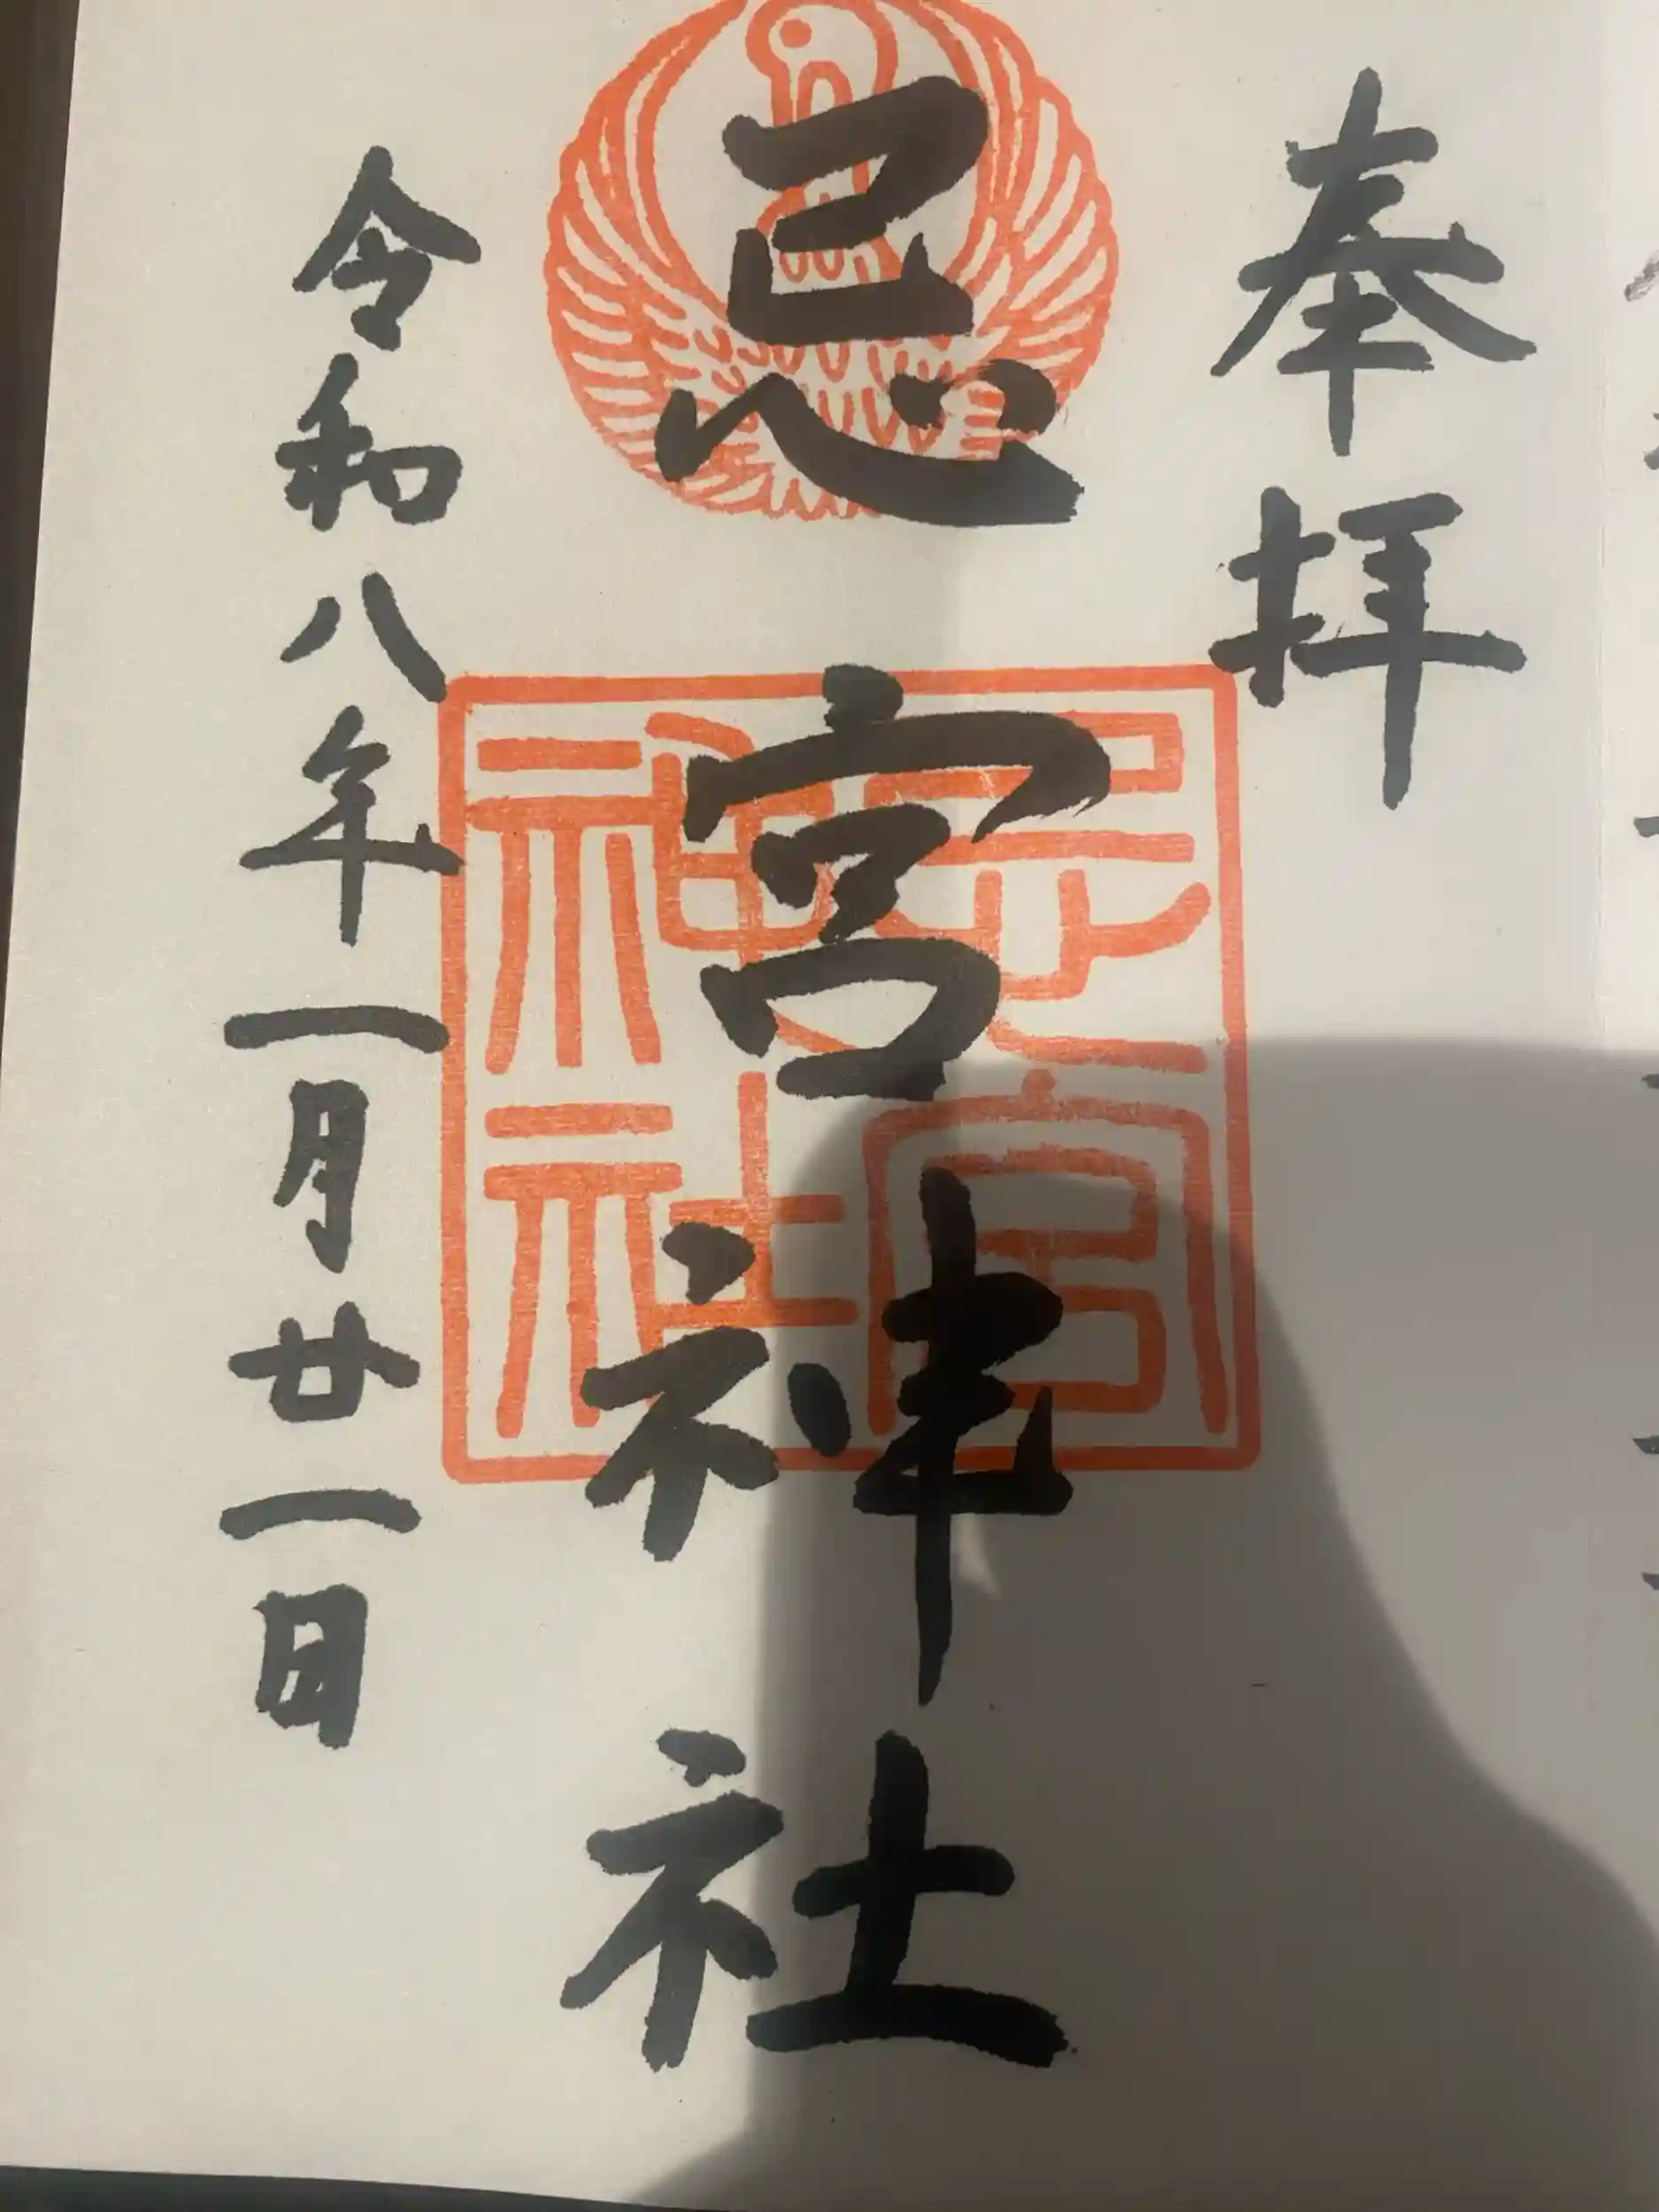 奉拝
忌宮神社
忌宮
神社
令和八年一月廿一日